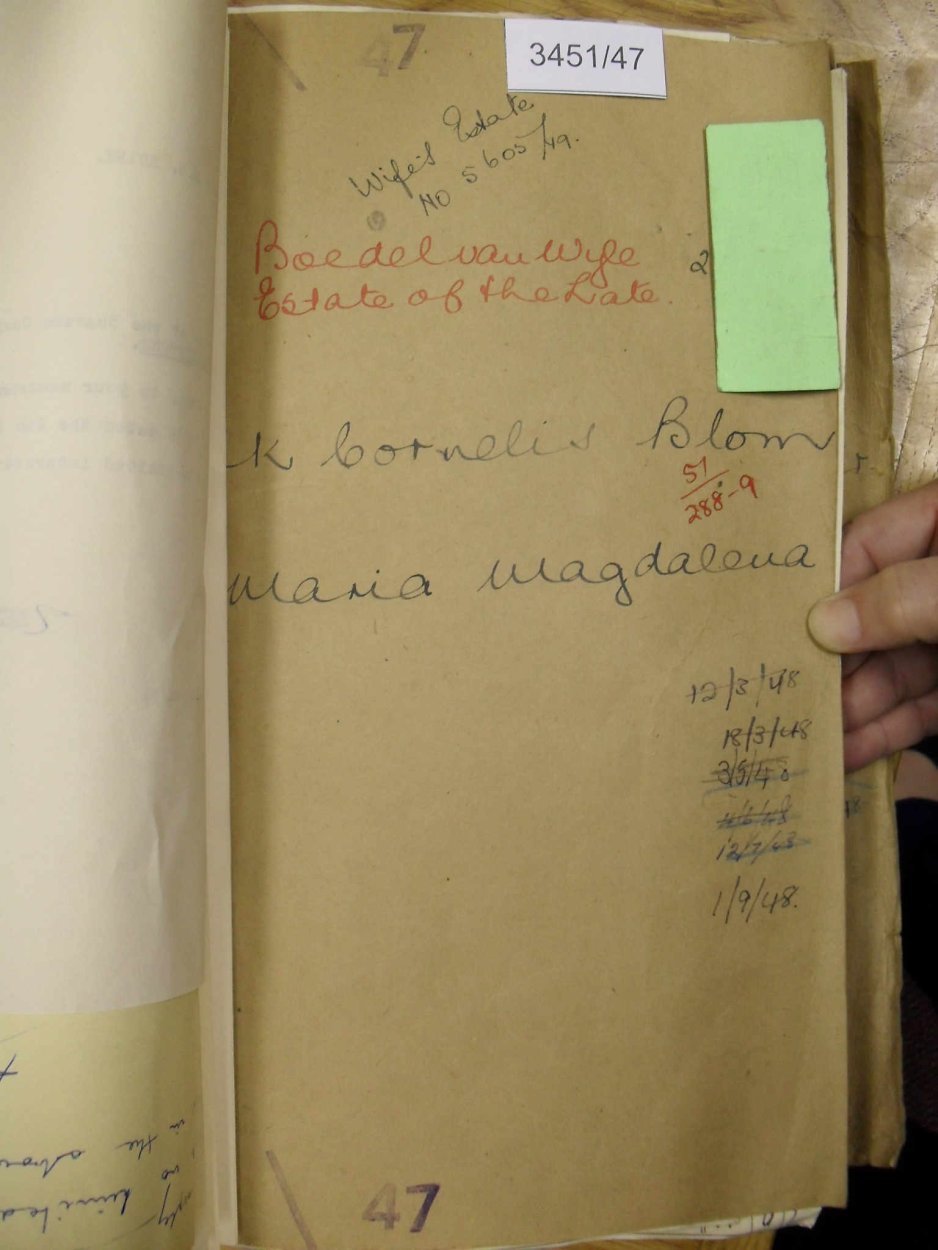 47
3451/47
Wife's Estate
No 5605/49.
Boedel van Wyle
Estate of the Late.
2
K Cornelis Blom
51/288-9
Maria Magdalena
12/3/48
18/3/48
3/5/48
4/6/48
12/7/48
1/9/48.
in the
47